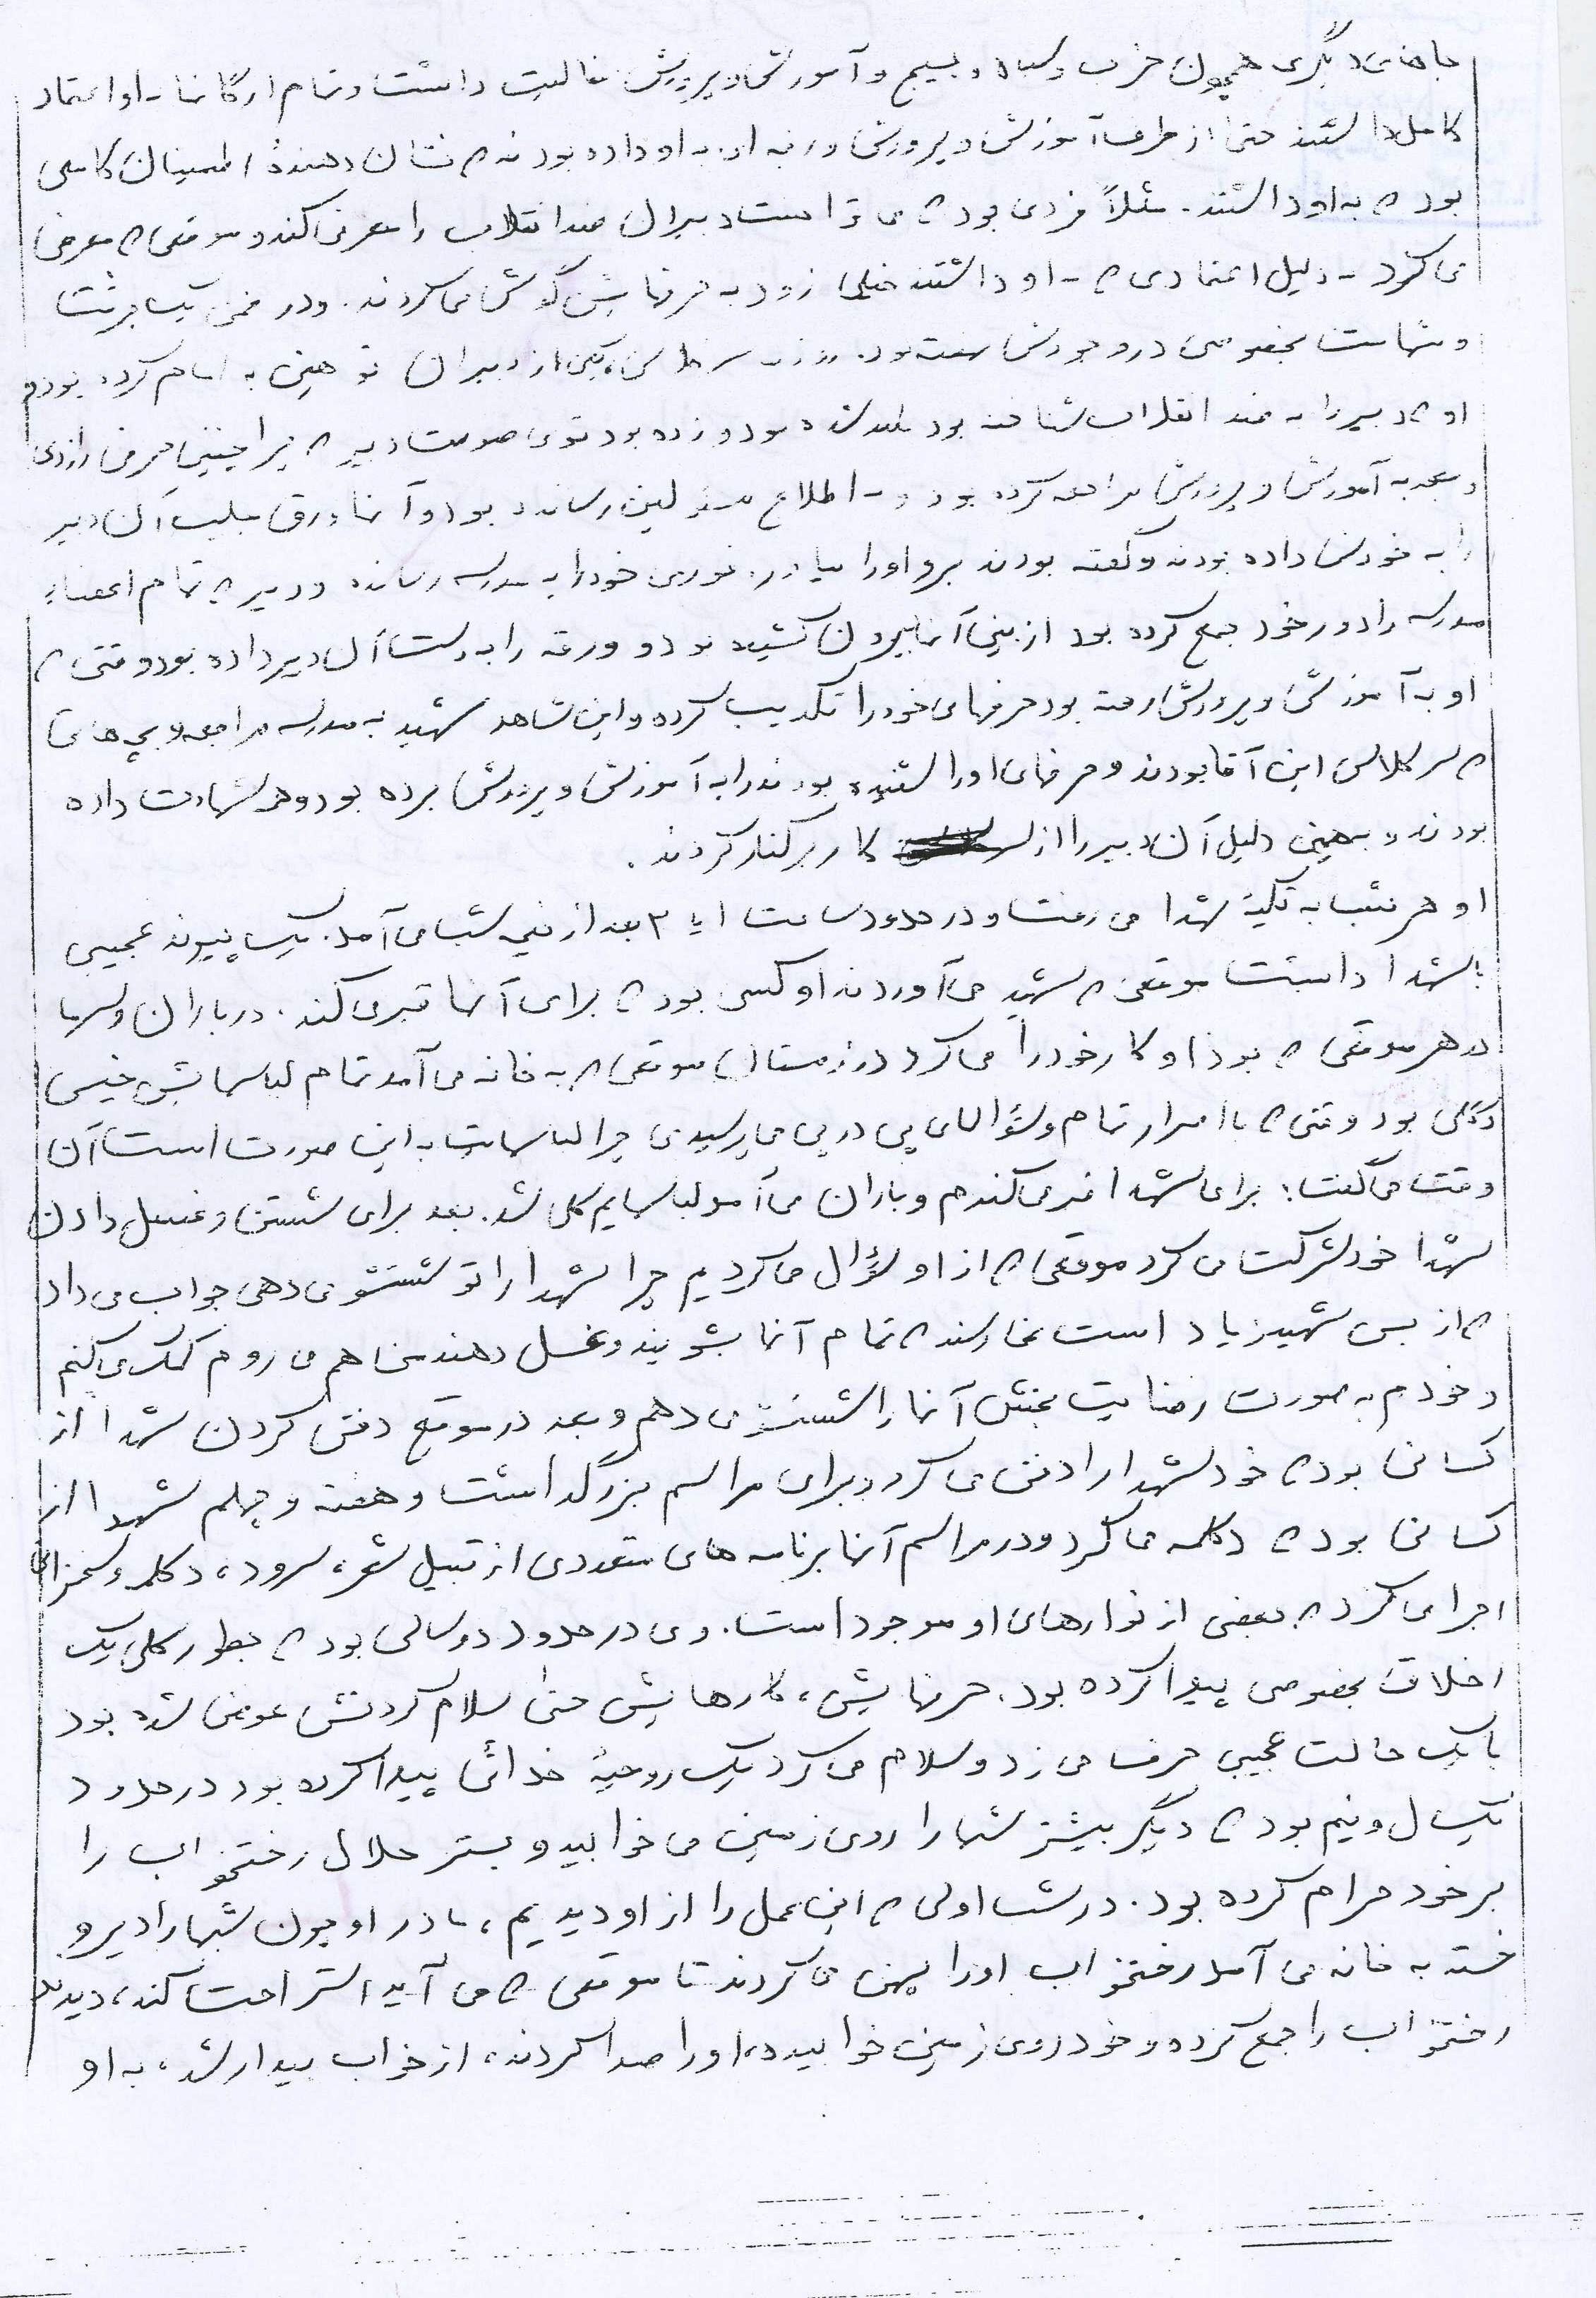 جاهای دیگری همچون حزب و سپاه و بسیج و آموزش و پرورش فعالیت داشت و تمام ارگانها به او اعتماد
کامل داشتند حتی از طرف آموزش و پرورش ورقه ای به او داده بودند که نشان دهندۀ اطمینان کاملی
بود که به او داشتند. مثلاً فردی بود که می توانست دبیران ضد انقلاب را معرفی کند و موقعی که معرفی
می کرد به دلیل اعتمادی که به او داشتند خیلی زود به حرفهایش گوش می کردند. و در ضمن یک جرئت
و شهامت بخصوصی در وجودش نهفته بود. روزی سر کلاس، یکی از دبیران توهینی به امام کرده بود و
او که دبیر را به ضد انقلاب شناخته بود بلند شده بود و زده بود توی صورت دبیر که چرا چنین حرفی را زدی
و بعد به آموزش و پرورش مراجعه کرده بود و به اطلاع مسئولین رسانده بود و آنها ورق جلب آن دبیر
را به خودش داده بودند و گفته بودند برو او را بیاور. فوری خود را به مدرسه رسانده و دبیر که تمام اعضاء
مدرسه را دور خود جمع کرده بود از بین آنها بیرون کشیده بود و ورقه را بدست آن دبیر داده بود وقتی که
او به آموزش و پرورش رفته بود حرفهای خود را تکذیب کرده و این شاهد شهید به مدرسه مراجعه و بچه هائی
که سر کلاس این آقا بودند و حرفهای او را شنیده بودند را به آموزش و پرورش برده بود و همه شهادت داده
بودند و بهمین دلیل آن دبیر را از کار برکنار کردند.
او هر شب به تکیۀ شهدا می رفت و در حدود ساعت ۱ یا ۲ بعد از نیمه شب می آمد. یک پیوند عجیبی
با شهدا داشت موقعی که شهید می آوردند او کسی بود که برای آنها قبر می کند. در باران و سرما
در هر موقعی که بود او کار خود را می کرد در زمستان موقعی که به خانه می آمد تمام لباسهایش خیس
و گلی بود وقتی که با اصرار تمام و سؤالهای پی در پی می پرسیدی چرا لباسهایت به این صورت است آن
وقت می گفت: برای شهدا قبر می کندم و باران می آمد لباسهایم گلی شد. بعد برای شستن و غسل دادن
شهدا خود شرکت می کرد موقعی که از او سؤال می کردیم چرا شهدا را تو شستشو می دهی جواب می داد
که از بس شهید زیاد است نمی رسند که تمام آنها بشویند و غسل دهند من هم می روم کمک می کنم
و خودم به صورت رضایت بخش آنها را شستشو می دهم و بعد در موقع دفن کردن شهدا از
کسانی بود که خود شهدا را دفن می کرد و برای مراسم بزرگداشت و هفته و چهلم شهدا از
کسانی بود که دکلمه می کرد و در مراسم آنها برنامه های متعددی از قبیل شعر، سرود، دکلمه و سخنرانی
اجرا می کرد که بعضی از نوارهای او موجود است. وی در حدود دو سالی بود که بطور کلی یک
اخلاق بخصوصی پیدا کرده بود. حرفهایش، کارهایش حتی سلام کردنش عوض شده بود
با یک حالت عجیبی حرف می زد و سلام می کرد یک روحیۀ خدائی پیدا کرده بود در حدود
یکسال و نیم بود که دیگر بیشتر شبها را روی زمین می خوابید و بستر حلال رختخواب را
بر خود حرام کرده بود. در شب اولی که این عمل را از او دیدیم، مادر او چون شبها را دیر و
خسته به خانه می آمد رختخواب او را پهن می کردند تا موقعی که می آید استراحت کند، دیدند
رختخواب را جمع کرده و خود روی زمین خوابیده، او را صدا کردند، از خواب بیدار شد، به او